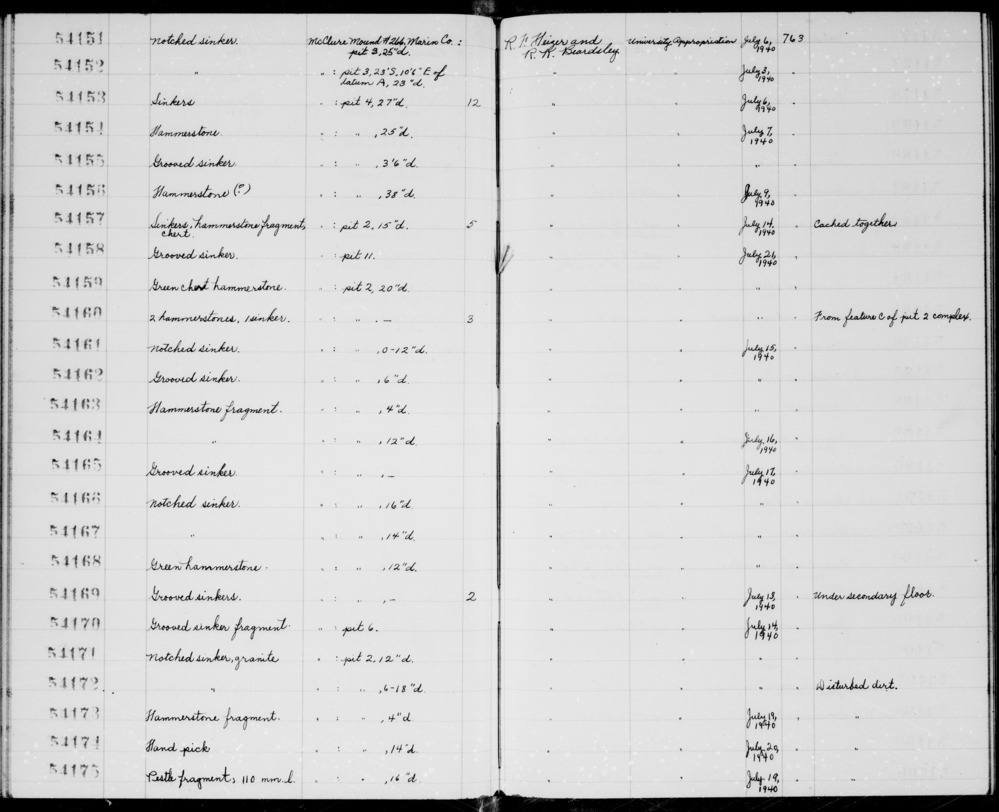 54151 notched sinker. McClure Mound #266, Marin Co.: pit 3, 25"d. R. F. Heizer and R. K. Beardsley. University Appropriation July 6, 1940 763
54152 " . : pit 3, 23'S, 10'6" E of datum A, 23"d. " . July 3, 1940 .
54153 Sinkers . : pit 4, 27"d. 12 " . July 6, 1940 .
54154 Hammerstone. . : " , 25"d. " . July 7, 1940 .
54155 Grooved sinker. . : " , 3'6"d. " . " .
54156 Hammerstone (?) . : " , 38"d. " . July 9, 1940 .
54157 Sinkers, hammerstone fragment, chert. . : pit 2, 15"d. 5 " . July 14, 1940 . Cached together.
54158 Grooved sinker. . : pit 11. " . July 21, 1940 .
54159 Green chert hammerstone. . : pit 2, 20"d. " . " .
54160 2 hammerstones, 1 sinker. . : " . — 3 " . " . From feature C of pit 2 complex.
54161 notched sinker. . : " , 0-12"d. " . July 15, 1940 .
54162 Grooved sinker. . : " , 6"d. " . " .
54163 Hammerstone fragment. . : " , 4"d. " . " .
54164 " . : " , 12"d. " . July 16, 1940 .
54165 Grooved sinker. . : " , — " . July 17, 1940 .
54166 notched sinker. . : " , 16"d. " . " .
54167 " . : " , 14"d. " . " .
54168 Green hammerstone. . : " , 12"d. " . " .
54169 Grooved sinkers. . : " , — 2 " . July 13, 1940 . Under secondary floor.
54170 Grooved sinker fragment. . : pit 6. " . July 14, 1940 .
54171 notched sinker, granite . : pit 2, 12"d. " . " .
54172 " . : " , 6-18"d. " . " . Disturbed dirt.
54173 Hammerstone fragment. . : " , 4"d " . July 19, 1940 . "
54174 Hand pick . : " , 14"d. " . July 20, 1940 . "
54175 Pestle fragment; 110 mm. l. . : " , 16"d. " . July 19, 1940 . "